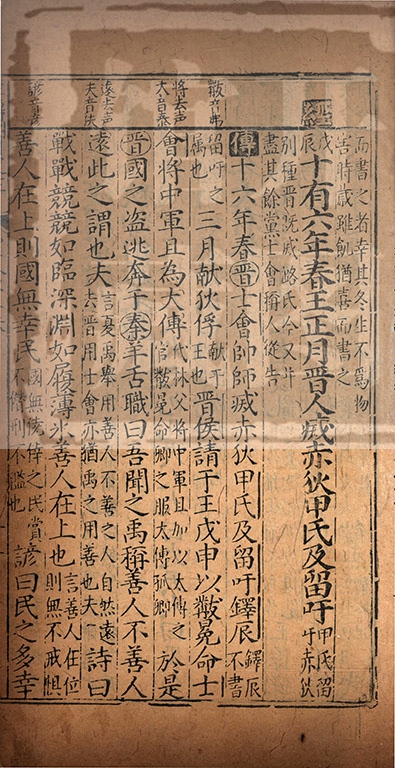 而書之者幸其冬生不爲物
害時歲雖飢猶喜而書之
戊辰
十有六年春王正月晉人滅赤狄甲氏及留吁甲氏留吁赤狄
別種晉既滅潞氏今又并
盡其餘黨士會稱人從告
傳十六年春晉士會帥師滅赤狄甲氏及留吁鐸辰鐸辰不書
黻音弗
留吁之属也三月献狄俘献于王也晉侯請于王戊申以黻冕命士
將去声
太音泰
會將中軍且為大傅代林父將中軍且加以太傅之官黻冕命卿之服太傅孤卿於是
晉國之盗逃奔于秦羊舌職曰吾聞之禹稱善人不善人
遠去声
夫音
遠此之謂也夫言夏禹舉用善人不善之人自然遠去晉用士會亦猶禹之用善也夫詩曰
戰戰兢兢如臨深淵如履薄氷善人在上也言善人在位則無不戒惧
諺音
善人在上則國無幸民國無僥倖之民賞不僭刑不濫也諺曰民之多幸